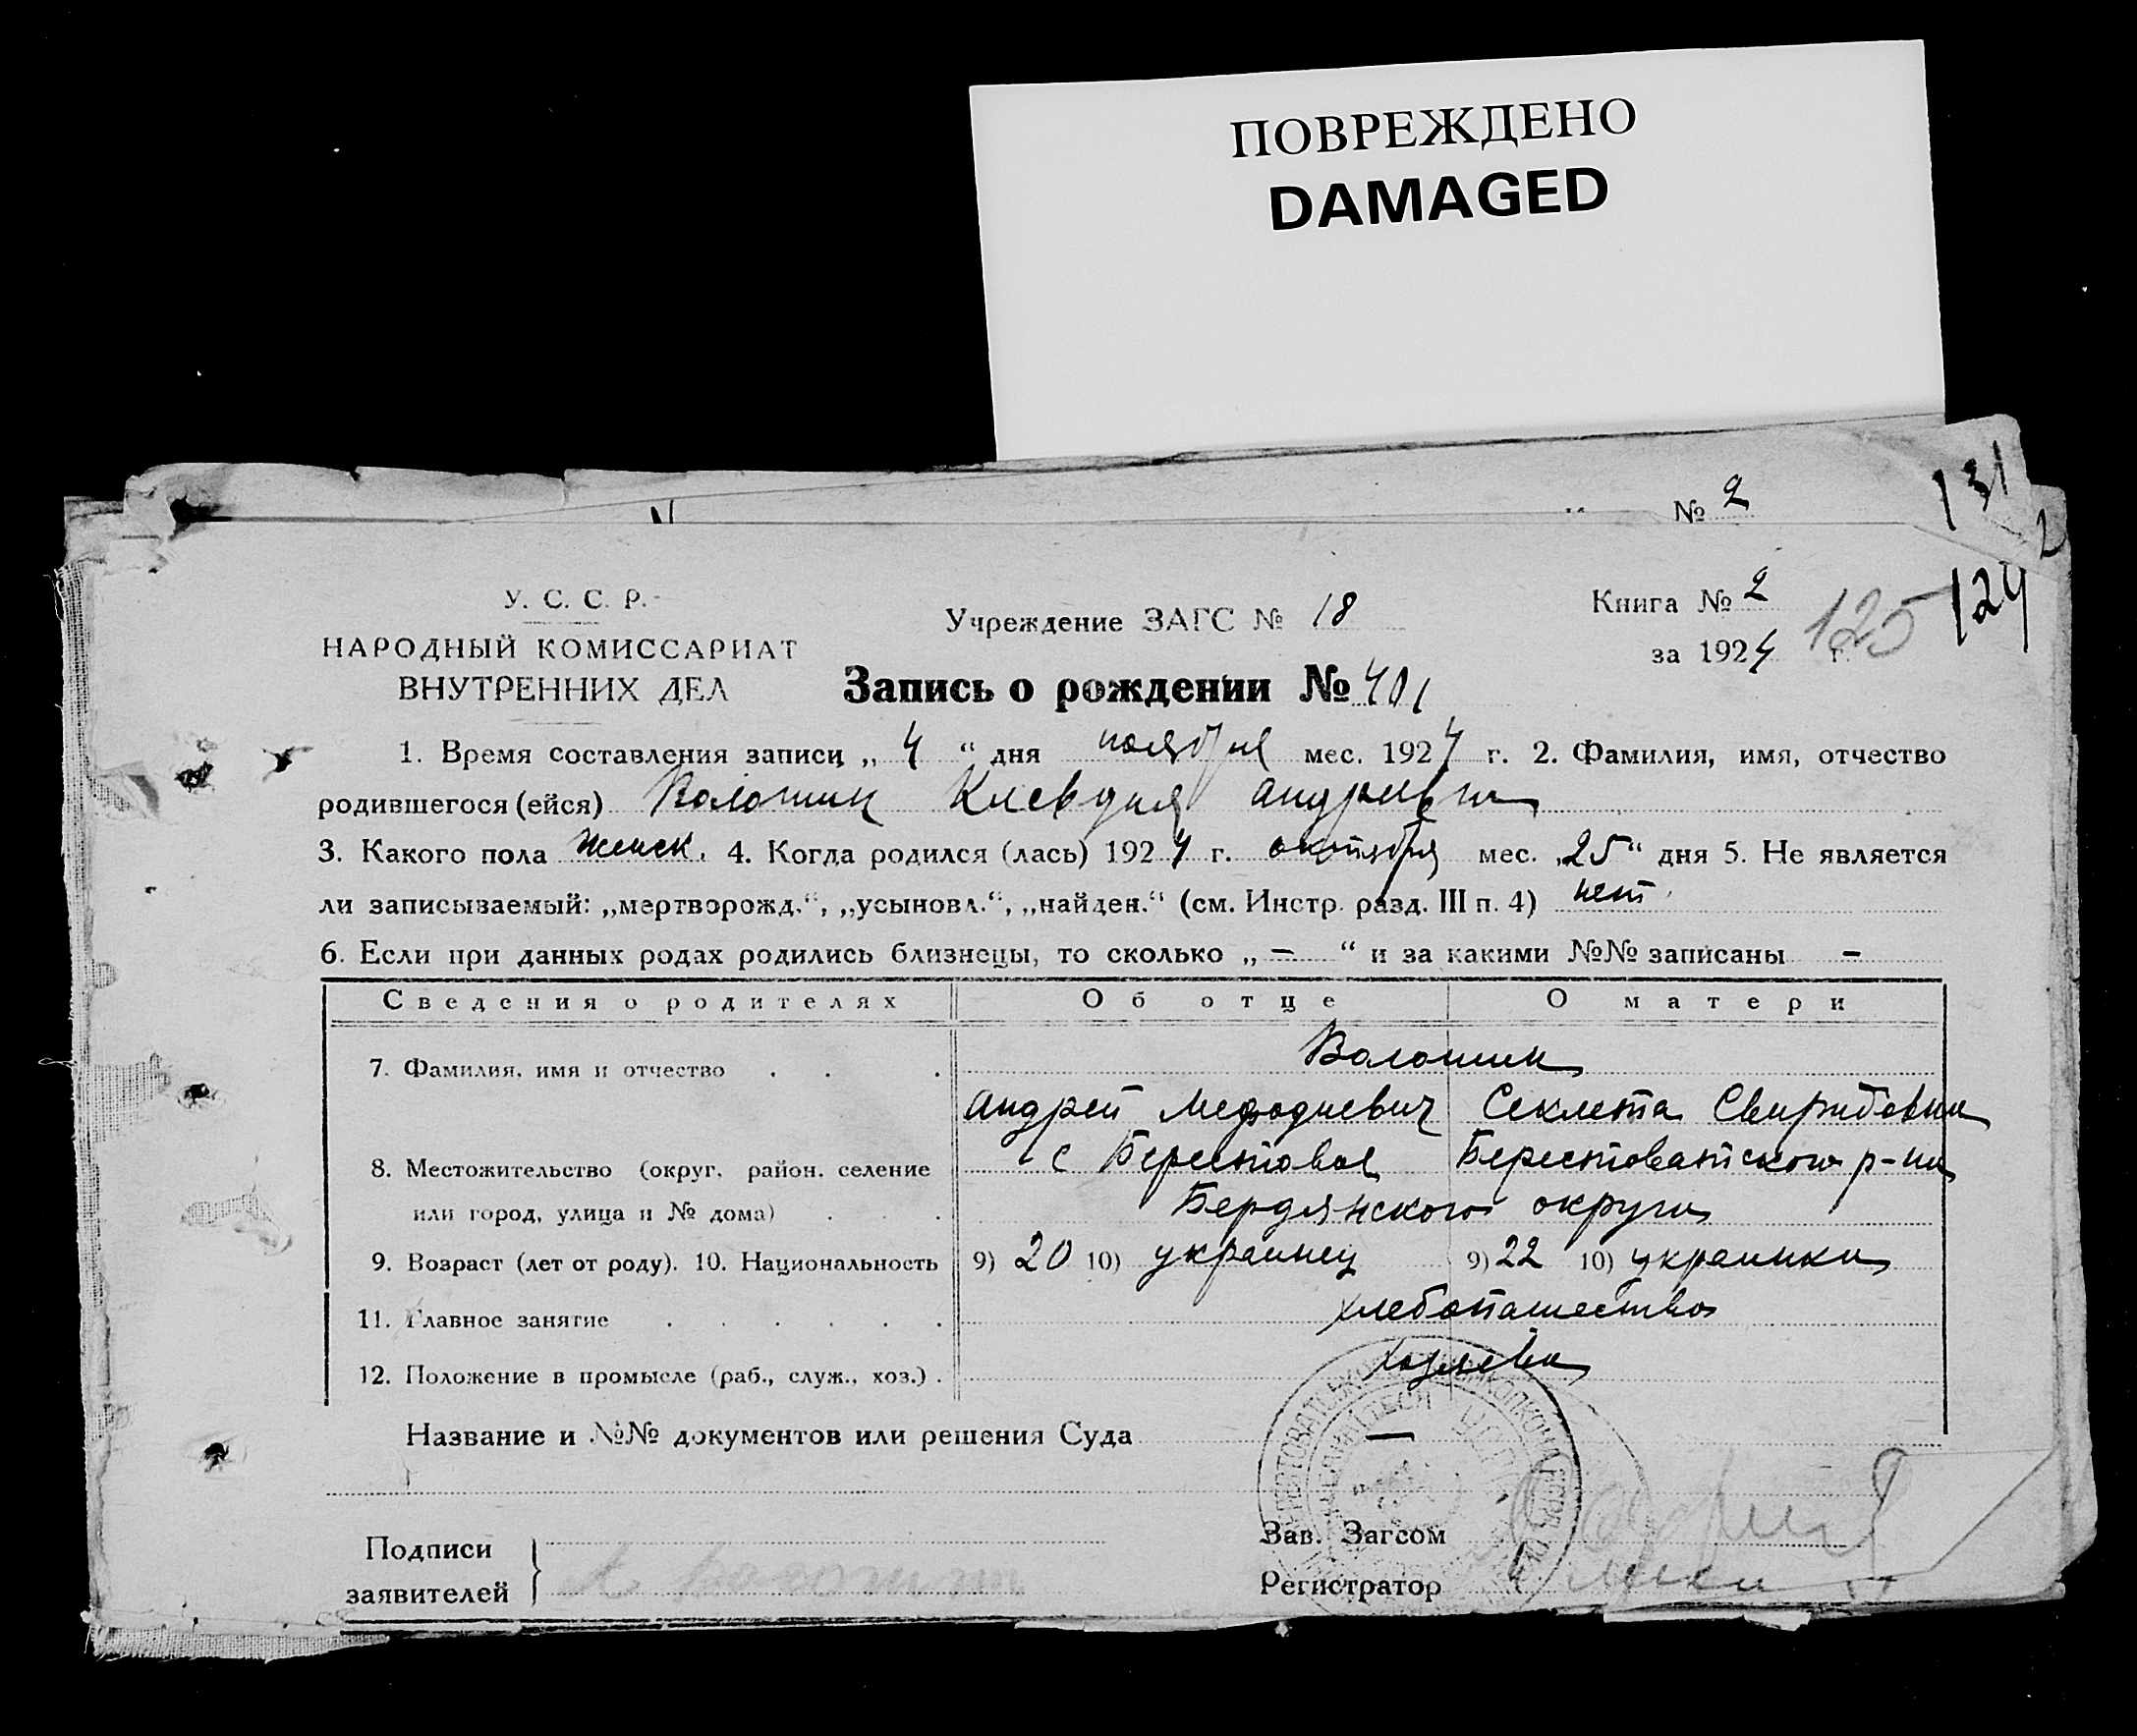 ПОВРЕЖДЕНО
DAMAGED
131
№ 2
2
У. С. С. Р.
Учреждение ЗАГС № 18
Книга № 2
125 129
НАРОДНЫЙ КОМИССАРИАТ
за 1924 г.
ВНУТРЕННИХ ДЕЛ
Запись о рождении № 401
1. Время составления записи „ 4 “ дня ноября мес. 1924 г. 2. Фамилия, имя, отчество
родившегося (ейся) Волошин Клевдия Андреевна
3. Какого пола женск. 4. Когда родился (лась) 1924 г. октября мес. „25“ дня 5. Не является
ли записываемый: „мертворожд.“, „усыновл.“, „найден.“ (см. Инстр. разд. III п. 4) нет
6. Если при данных родах родились близнецы, то сколько „ – “ и за какими №№ записаны –
Сведения о родителях Об отце О матери
Волошин
7. Фамилия, имя и отчество
Андрей Мефодиевич Секлета Свиридовна
8. Местожительство (округ, район, селение с Берестовое Берестоватского р-на
или город, улица и № дома) Бердянского округа
9. Возраст (лет от роду). 10. Национальность 9) 20 10) украинец 9) 22 10) украинка
11. Главное занятие хлебопашество
12. Положение в промысле (раб., служ., хоз.) хозяева
Название и №№ документов или решения Суда —
Подписи
заявителей
Зав. Загсом
Регистратор